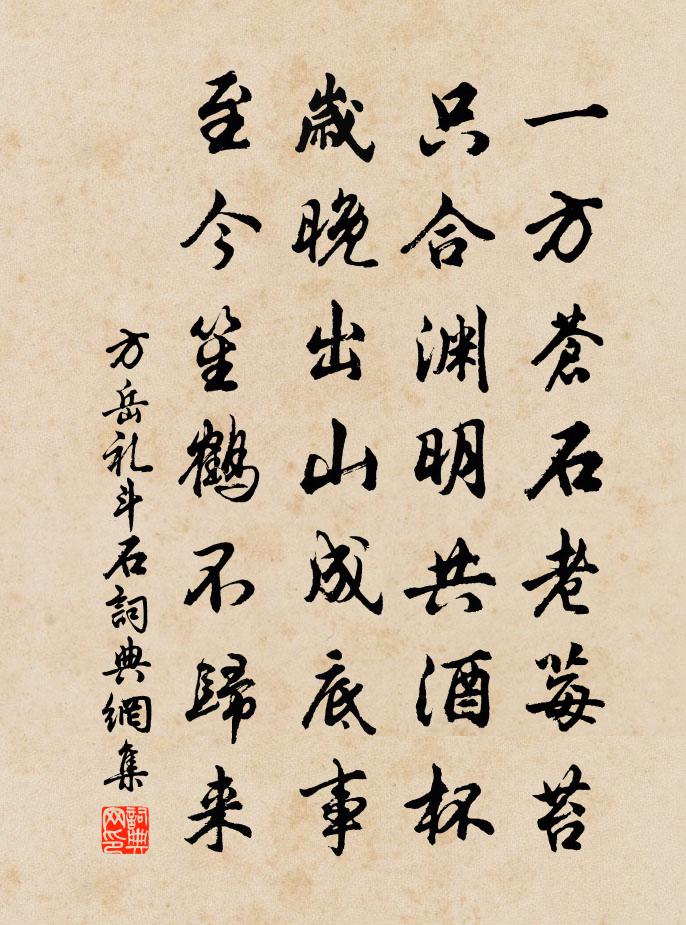 一方蒼石老莓苔
只合渊明共酒杯
歳晚出山成底事
至今笙鶴不歸来
方岳礼斗石詞典網集
詞典网印